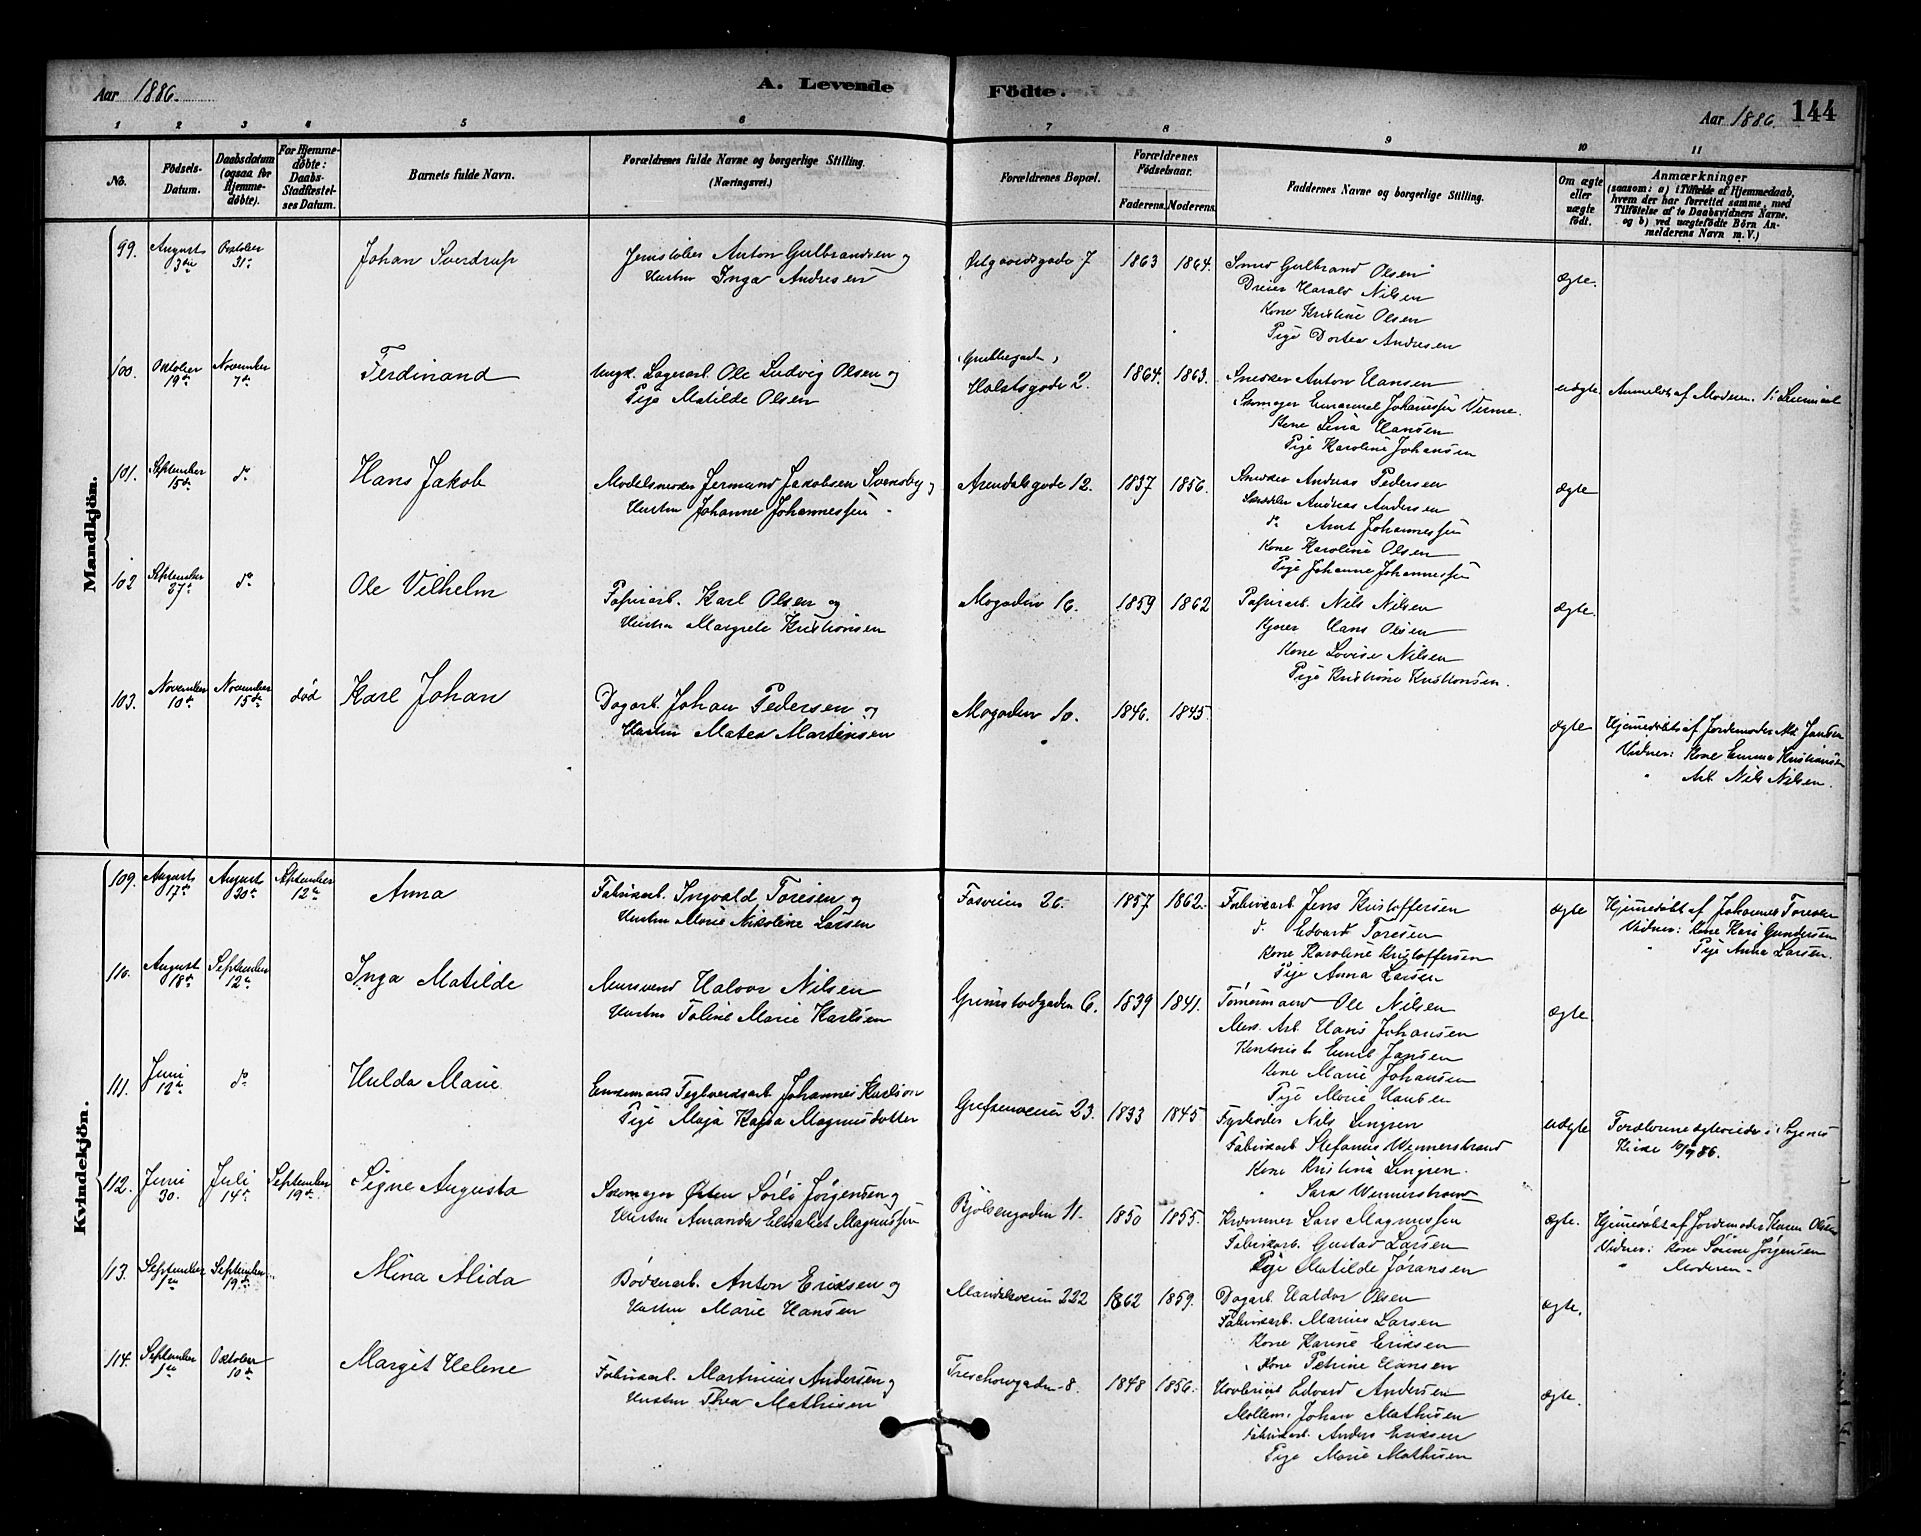 Aar 1886.
A. Levende Födte.
Aar 1886. 144
1 2 3 4 5 6 7 8 9 10 11
No.
Födsels-Datum.
Daabsdatum (ogsaa for Hjemmedöbte).
For Hjemmedöbte: Daabs-Stadfæstelses Datum.
Barnets fulde Navn.
Forældrenes fulde Navne og borgerlige Stilling. (Næringsvei.)
Forældrenes Bopæl.
Forældrenes Födselsaar.
Faderens. Moderens.
Faddernes Navne og borgerlige Stilling.
Om ægte eller uægte födt.
Anmærkninger
(saasom: a) i Tilfælde af Hjemmedaab, hvem der har forrettet samme, med Tilföielse af to Daabsvidners Navne, og b) ved uægtefödte Börn Anmelderens Navn m. V.)
Mandkjön.
99. August 3die Oktober 31te
Johan Sverdrup
Jernstøber Anton Gulbrandsen og
Hustru Inga Andresen
7 1863 1864.
Smed Gulbrand Olsen
Dreier Harald Nilsen
Kone Kristine Olsen
Pige Dortea Andresen
ægte.
100. Oktober 19de November 7de
Ferdinand
Ungk. Lagerarb. Ole Ludvig Olsen og
Pige Matilde Olsen
(Grubbegaden)
Holstsgade 2. 1864. 1863.
Snedker Anton Hansen
Skomager Emanuel Johannessen
Kone Lina Hansen
Pige Karoline Johansen
uægte. Anmeldt af Moderen.
101. September 15de do
Hans Jakob
Modelsnedker Jermund Jakobsen Svensby og
Hustru Johanne Johannessen
Arendalsgade 12. 1837 1856.
Snedker Andreas Pedersen
Skrædder Andreas Andersen
do Arnt Johannessen
Kone Karoline Olsen
Pige Johanne Johannessen
ægte
102 September 27de do
Ole Vilhelm
Papirarb. Karl Olsen og
Hustru Margrete Kristiansen
Mogaden 16. 1859 1862
Papirarb. Nils Nilsen
Kjører Hans Olsen
Kone Lovise Nilsen
Pige Kristine Kristiansen.
ægte.
103. November 10de November 15de død
Karl Johan
Dagarb. Johan Pedersen og
Hustru Matea Martinsen
Mogaden 10. 1846. 1845.
ægte Hjemmedøbt af Jordemoder Jansen
Vidner: Kone Emma Kristiansen
" Arb. Nils Nilsen.
Kvindekjön.
109. August 17de August 20de September 12te
Anna
Fabrikarb. Ingvald Toresen og
Hustru Marie Nikoline Larsen
Fosveien 26. 1857 1862.
Fabrikarb Jens Kristoffersen
do Edvard Toresen
Kone Karoline Kristoffersen
Pige Anna Larsen
ægte Hjemmedøbt af Johannes Toresen
Vidner: Kone Kari Gundersen
" Pige Anna Larsen.
110. August 18de September 12te
Inga Matilde
Murersvend Halvor Nilsen
Hustru Toline Marie Karlsen
Grimstadgaden 6. 1839 1841.
Tømmermand Ole Nilsen
Mek. Arb. Hans Johansen
Kontorist Emil Jansen
Kone Marie Johansen
Pige Marie Hansen
ægte.
111. Juni 12te do
Hulda Marie
Enkemand Teglverksarb. Johannes Karlson
Pige Maja Kajsa Magnusdotter
Grefsenveien 23. 1833 1845
Fyrbøder Nils Lingren
Fabrikarb Stefanus Wennerstrand
Kone Kristina Lingren.
" Sara Wennerstrand
uægte Forældrene ægteviede i Sagenes
Kirke 10/9 86.
112. Juni 30. Juli 14de September 19de
Signe Augusta
Skomager Østen Sørli Jørgensen og
Hustru Amanda Elisabet Magnussen
Bjølsengaden 11. 1850 1855.
Kræmmer Lars Magnussen
Fabrikarb. Gustav Larsen
Pige Matilde Jøransen
ægte. Hjemmedøbt af Jordemoder Karen Olsen
Vidner: Kone Sørine Jørgensen
" Moderen.
113. September 1ste September 19de
Mina Alida
Bødkerarb. Anton Eriksen og
Hustru Marie Hansen
Maridalsveien 222 1862 1859.
Dagarb. Haldor Olsen
Fabrikarb. Marius Larsen
Kone Karine Eriksen
Kone Petrine Hansen
ægte.
114. September 1ste Oktober 10de
Margit Helene
Fabrikarb. Martinius Andersen og
Hustru Thea Mathisen
Treschowgaden 8. 1848 1856.
Edvard Andersen
Møllem. Johan Mathisen
Fabrikarb. Anders Eriksen
Pige Marie Mathisen
ægte.